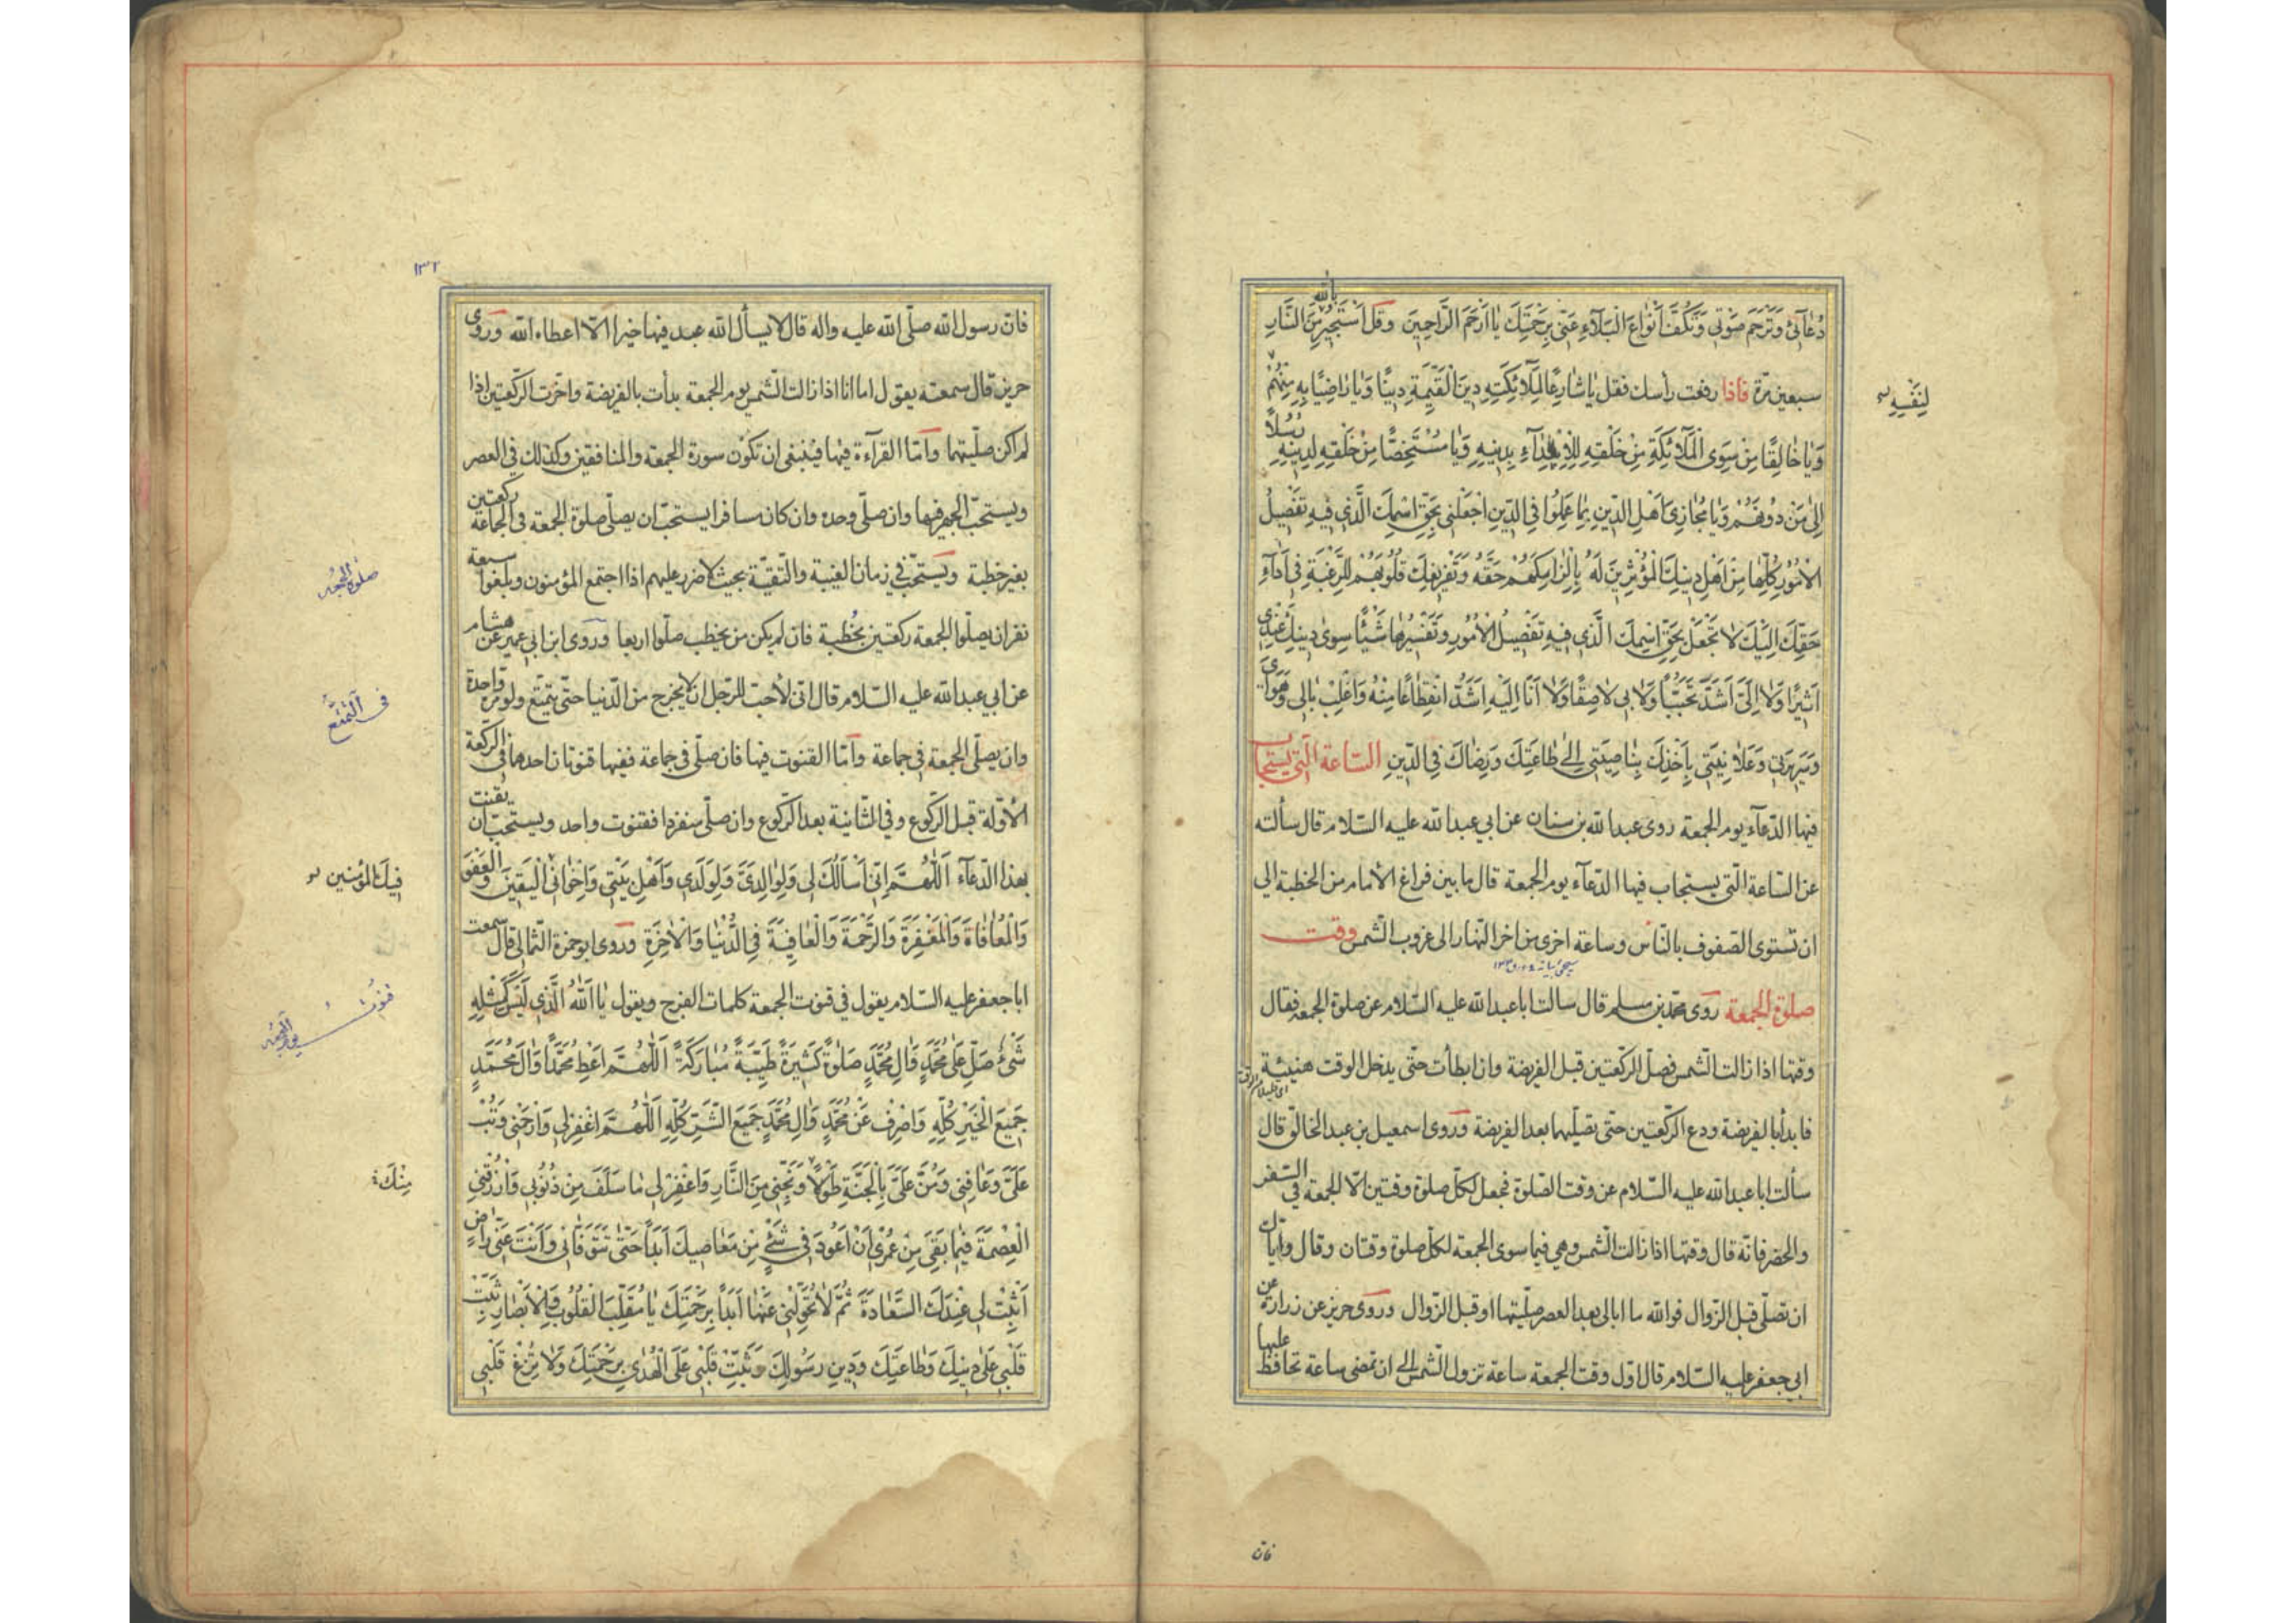 دُعَآئِى وَتَرْحَمَ صَوْتِى وَتَكُفَّ اَنْوَاعَ الْبَلَآءِ عَنِّى بِرَحْمَتِكَ يَا اَرْحَمَ الرَّاحِمِينَ وقل اَسْتَجِيرُ بِاللّٰهِ مِنَ النَّارِ
سبعين مرّة فاذا رفعت رأسك فقل يَا شَارِعًا لِمَلَآئِكَتِهِ دِينَ الْقَيِّمَةِ دِينًا وَيَا رَاضِيًا بِهِ مِنْهُمْ
لِنَفْسِهِ
وَيَا خَالِقًا مِنْ سِوَى الْمَلَآئِكَةِ مِنْ خَلْقِهِ لِلْاِبْتِلَآءِ بِدِينِهِ وَيَا مُسْتَخِصًّا مِنْ خَلْقِهِ لِدِينِهِ رُسُلًا
اِلٰى مَنْ دُونَهُمْ وَيَا مُجَازِىَ اَهْلِ الدِّينِ بِمَا عَمِلُوا فِى الدِّينِ اجْعَلْنِى بِحَقِّ اسْمِكَ الَّذِى فِيهِ تَفْصِيلُ
الْاُمُورِ كُلِّهَا مِنْ اَهْلِ دِينِكَ الْمُؤْثِرِينَ لَهُ بِاِلْزَامِكَهُمْ حَقَّهُ وَتَفْرِيغِكَ قُلُوبَهُمْ لِلرَّغْبَةِ فِى اَدَآءِ
حَقِّكَ اِلَيْكَ لَا تَجْعَلْ بِحَقِّ اسْمِكَ الَّذِى فِيهِ تَفْصِيلُ الْاُمُورِ وَتَفْسِيرُهَا شَيْئًا سِوٰى دِينِكَ عِنْدِى
اَثِيرًا وَلَا اِلَىَّ اَشَدَّ تَحَبُّبًا وَلَا بِى لَاصِقًا وَلَا اَنَا اِلَيْهِ اَشَدَّ انْقِطَاعًا مِنْهُ وَاغْلِبْ بَالِى وَهَوَاىَ
وَسَرِيرَتِى وَعَلَانِيَتِى بِاَخْذِكَ بِنَاصِيَتِى اِلٰى طَاعَتِكَ وَرِضَاكَ فِى الدِّينِ السّاعة الّتى يستجاب
فيها الدّعآء يوم الجمعة روى عبدالله بن سنان عن ابي عبدالله عليه السّلام قال سألته
عن السّاعة الّتى يستجاب فيها الدّعآء يوم الجمعة قال ما بين فراغ الامام من الخطبة الى
ان تستوى الصّفوف بالنّاس وساعة اخرى من اخر النّهار الى غروب الشّمس وقت
صلوة الجمعة روى محمّد بن مسلم قال سالت ابا عبدالله عليه السّلام عن صلوة الجمعة فقال
وقتها اذا زالت الشّمس فصلّ الرّكعتين قبل الفريضة وان ابطأت حتّى يدخل الوقت هنيئة
فابدأ بالفريضة ودع الرّكعتين حتّى تصلّيهما بعد الفريضة وروى اسمعيل بن عبد الخالق قال
سألت ابا عبدالله عليه السّلام عن وقت الصّلوة فجعل لكلّ صلوة وقتين الّا الجمعة في السّفر
والحضر فانّه قال وقتها اذا زالت الشّمس وهي فيما سوى الجمعة لكلّ صلوة وقتان وقال وايّاك
ان تصلّي قبل الزّوال فوالله ما ابالى بعد العصر صلّيتها او قبل الزّوال وروى حريز عن زرارة عن
ابي جعفر عليه السّلام قال اوّل وقت الجمعة ساعة تزول الشّمس الى ان تمضى ساعة تحافظ عليها
فان
١٣٢
فانّ رسول الله صلّى الله عليه واله قال لا يسأل الله عبد فيها خيرا الّا اعطاه الله وروى
حريز قال سمعته يقول اما انا اذا زالت الشّمس يوم الجمعة بدأت بالفريضة واخّرت الرّكعتين اذا
لم اكن صلّيتهما وامّا القرآءة فيها فينبغى ان تكون سورة الجمعة والمنافقين وكذلك في العصر
ويستحبّ الجهر فيها وان صلّى وحده وان كان مسافرا يستحبّ ان يصلّى صلوة الجمعة فى الجماعة ركعتين
بغير خطبة ويستحبّ في زمان الغيبة والتّقيّة بحيث لا ضرر عليهم اذا اجتمع المؤمنون وبلغوا سبعة
صلوة الجمعه
نفر ان يصلّوا الجمعة ركعتين بخطبة فان لم يكن من يخطب صلّوا اربعا وروى ابن ابي عمير عن هشام
عن ابي عبدالله عليه السّلام قال انّى لاحبّ للرّجل ان لا يخرج من الدّنيا حتّى يتمتّع ولو مرّة واحدة
فى التمتّع
وان يصلّى الجمعة في جماعة وامّا القنوت فيها فان صلّى فى جماعة ففيها قنوتان احدهما فى الرّكعة
الاوّلة قبل الرّكوع وفي الثّانية بعد الرّكوع وان صلّى منفردا فقنوت واحد ويستحبّ ان يقنت
بهذا الدّعآء اَللّٰهُمَّ اِنِّى اَسْاَلُكَ لِى وَلِوَالِدَىَّ وَلِوَلَدِى وَاَهْلِ بَيْتِى وَاِخْوَانِى الْيَقِينَ وَالْعَفْوَ
فِيكَ الْمُؤْمِنِينَ
وَالْمُعَافَاةَ وَالْمَغْفِرَةَ وَالرَّحْمَةَ وَالْعَافِيَةَ فِى الدُّنْيَا وَالْاٰخِرَةِ وروى ابو حمزة الثّمالى قال سمعت
ابا جعفر عليه السّلام يقول فى قنوت الجمعة كلمات الفرج ويقول يَا اَللّٰهُ الَّذِى لَيْسَ كَمِثْلِهِ
قنوت
شَىْءٌ صَلِّ عَلٰى مُحَمَّدٍ وَاٰلِ مُحَمَّدٍ صَلٰوةً كَثِيرَةً طَيِّبَةً مُبَارَكَةً اَللّٰهُمَّ اَعْطِ مُحَمَّدًا وَاٰلَ مُحَمَّدٍ
جَمِيعَ الْخَيْرِ كُلِّهِ وَاصْرِفْ عَنْ مُحَمَّدٍ وَاٰلِ مُحَمَّدٍ جَمِيعَ الشَّرِّ كُلِّهِ اَللّٰهُمَّ اغْفِرْ لِى وَارْحَمْنِى وَتُبْ
عَلَىَّ وَعَافِنِى وَمُنَّ عَلَىَّ بِالْجَنَّةِ طَوْلًا وَنَجِّنِى مِنَ النَّارِ وَاغْفِرْ لِى مَا سَلَفَ مِنْ ذُنُوبِى وَارْزُقْنِى
مِنْكَ
الْعِصْمَةَ فِيمَا بَقِىَ مِنْ عُمْرِى اَنْ اَعُودَ فِى شَىْءٍ مِنْ مَعَاصِيكَ اَبَدًا حَتّٰى تَتَوَفَّانِى وَاَنْتَ عَنِّى رَاضٍ
اَثْبِتْ لِى عِنْدَكَ السَّعَادَةَ ثُمَّ لَا تُحَوِّلْنِى عَنْهَا اَبَدًا بِرَحْمَتِكَ يَا مُقَلِّبَ الْقُلُوبِ وَالْاَبْصَارِ ثَبِّتْ
قَلْبِى عَلٰى دِينِكَ وَطَاعَتِكَ وَدِينِ رَسُولِكَ وَثَبِّتْ قَلْبِى عَلَى الْهُدٰى بِرَحْمَتِكَ وَلَا تُزِغْ قَلْبِى